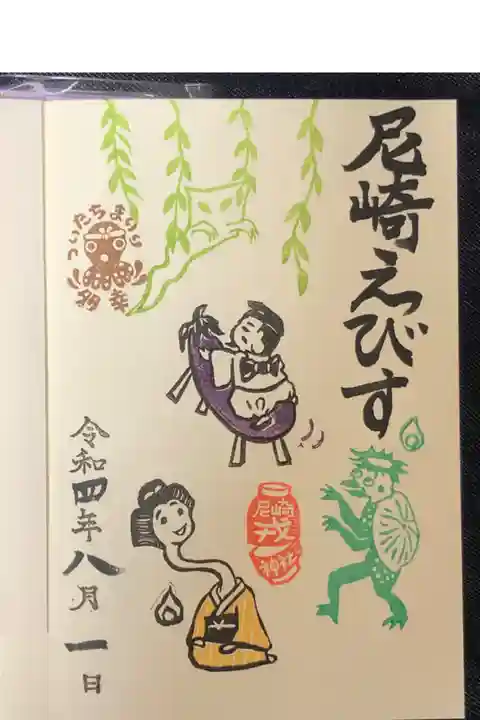 尼崎えびす
ついたちまいり
多幸
尼崎
戎
神社
令和四年八月一日